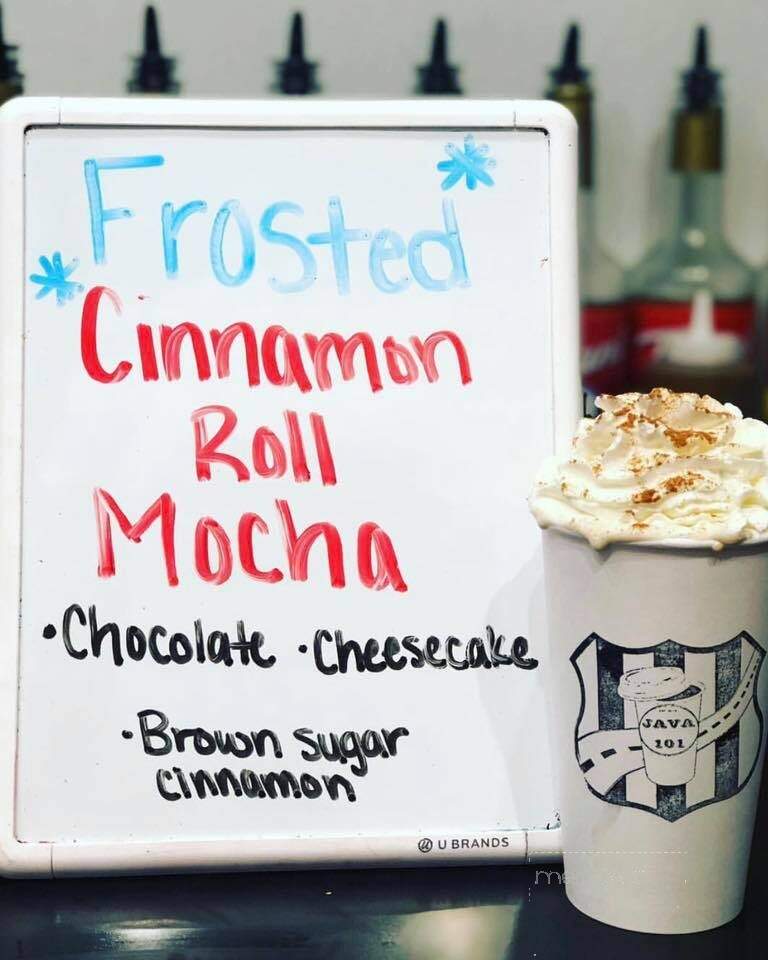 Frosted
Cinnamon
Roll
Mocha
•Chocolate •Cheesecake
•Brown sugar
cinnamon
U BRANDS
JAVA
101